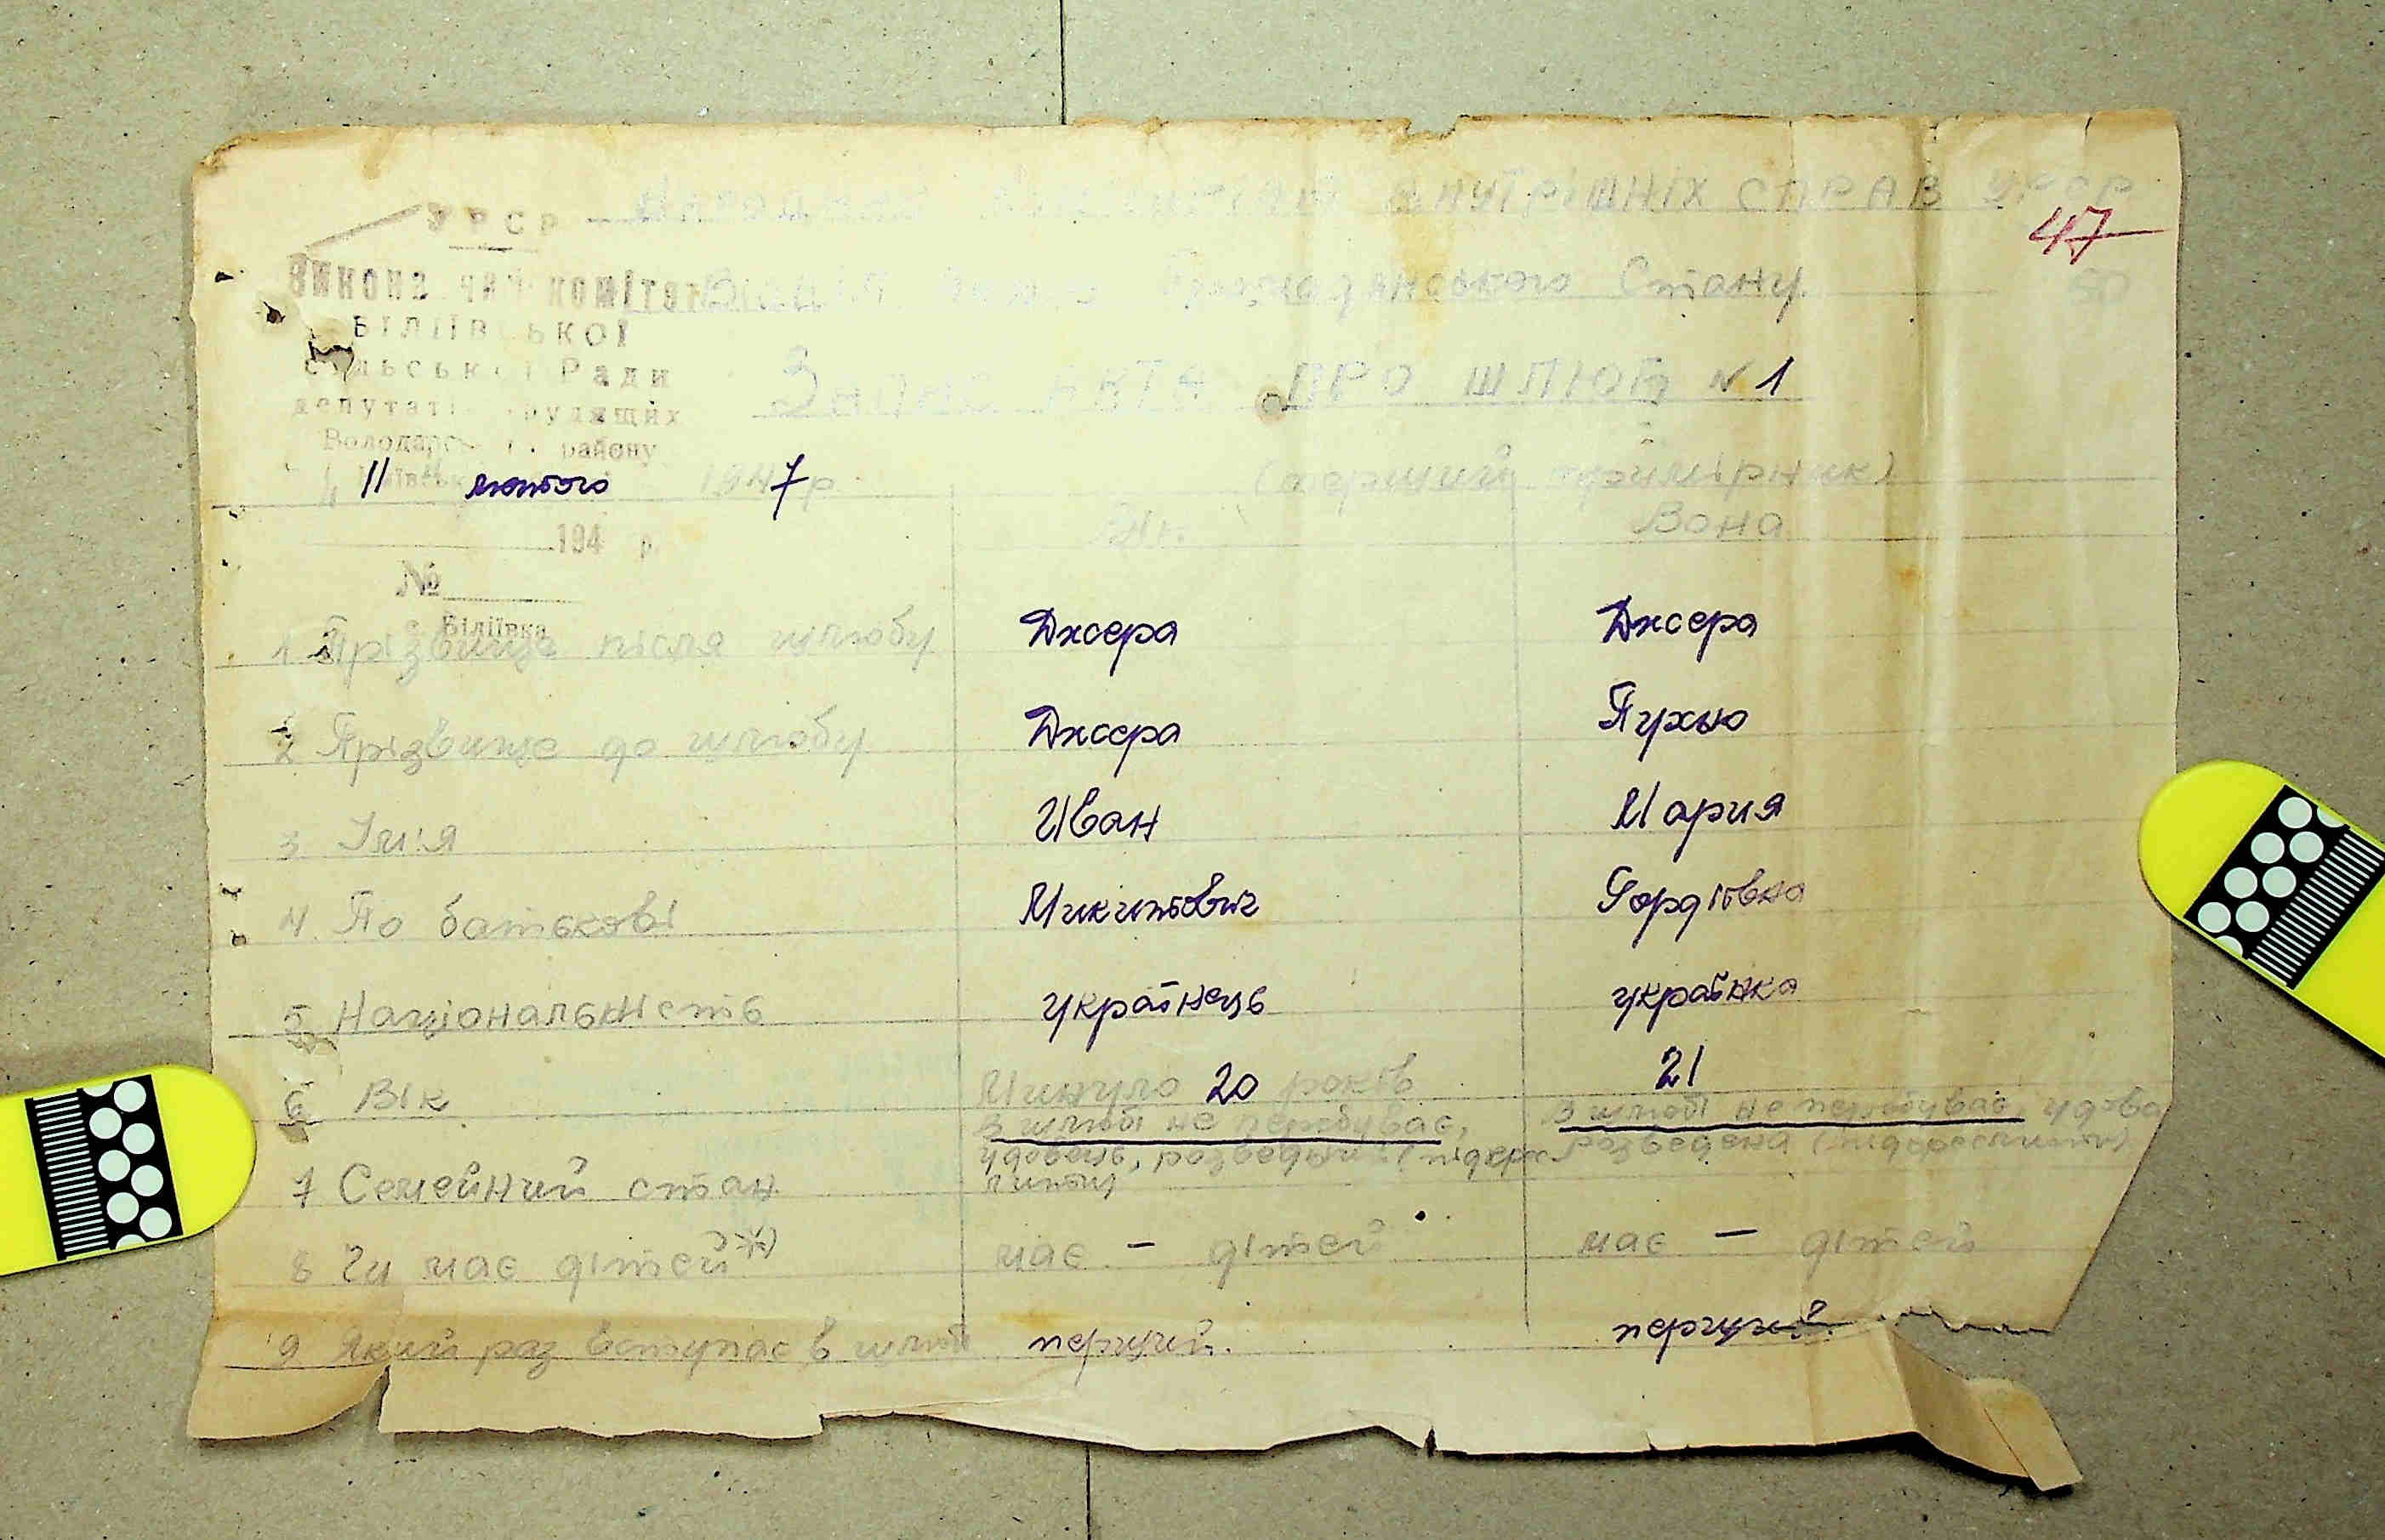 УРСР
Народний Комісаріат внутрішніх справ УРСР
47
50
Виконавчий комітет
Відділ Актів Громадянського Стану.
Біліївської
сільської Ради
депутатів трудящих
Запис акта про шлюб N 1
Володарського району
(перший примірник)
11 лютого 1947р
194 р.
Він. Вона
№
с. Біліївка
1 Прізвище після шлюбу Джера Джера
2 Прізвище до шлюбу Джера Пухью
3 Ім'я Иван Мария
4. По батькові Микитович Гордіївна
5 Національність українець українка
6 Вік Минуло 20 років 21
В шлюбі не перебуває, В шлюбі не перебуває, удова
удовець, розведен (підкрес розведена (підкреслити)
лити)
7 Семейний стан
8 Чи має дітей*) має - дітей має - дітей
9 Який раз вступає в шлюб перший. перший.